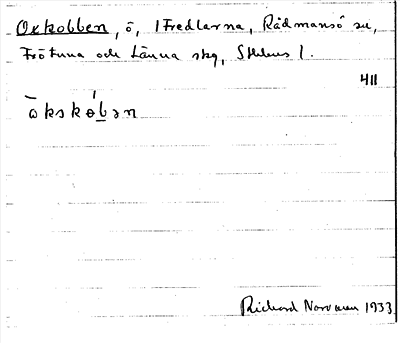 Oxkobben, ö, 1 Fredlarna, Rådmansö sn,
Frötuna och Länna skg, Sthlms l.
411
ω̄ksko̱bən
Richard Norrman 1933